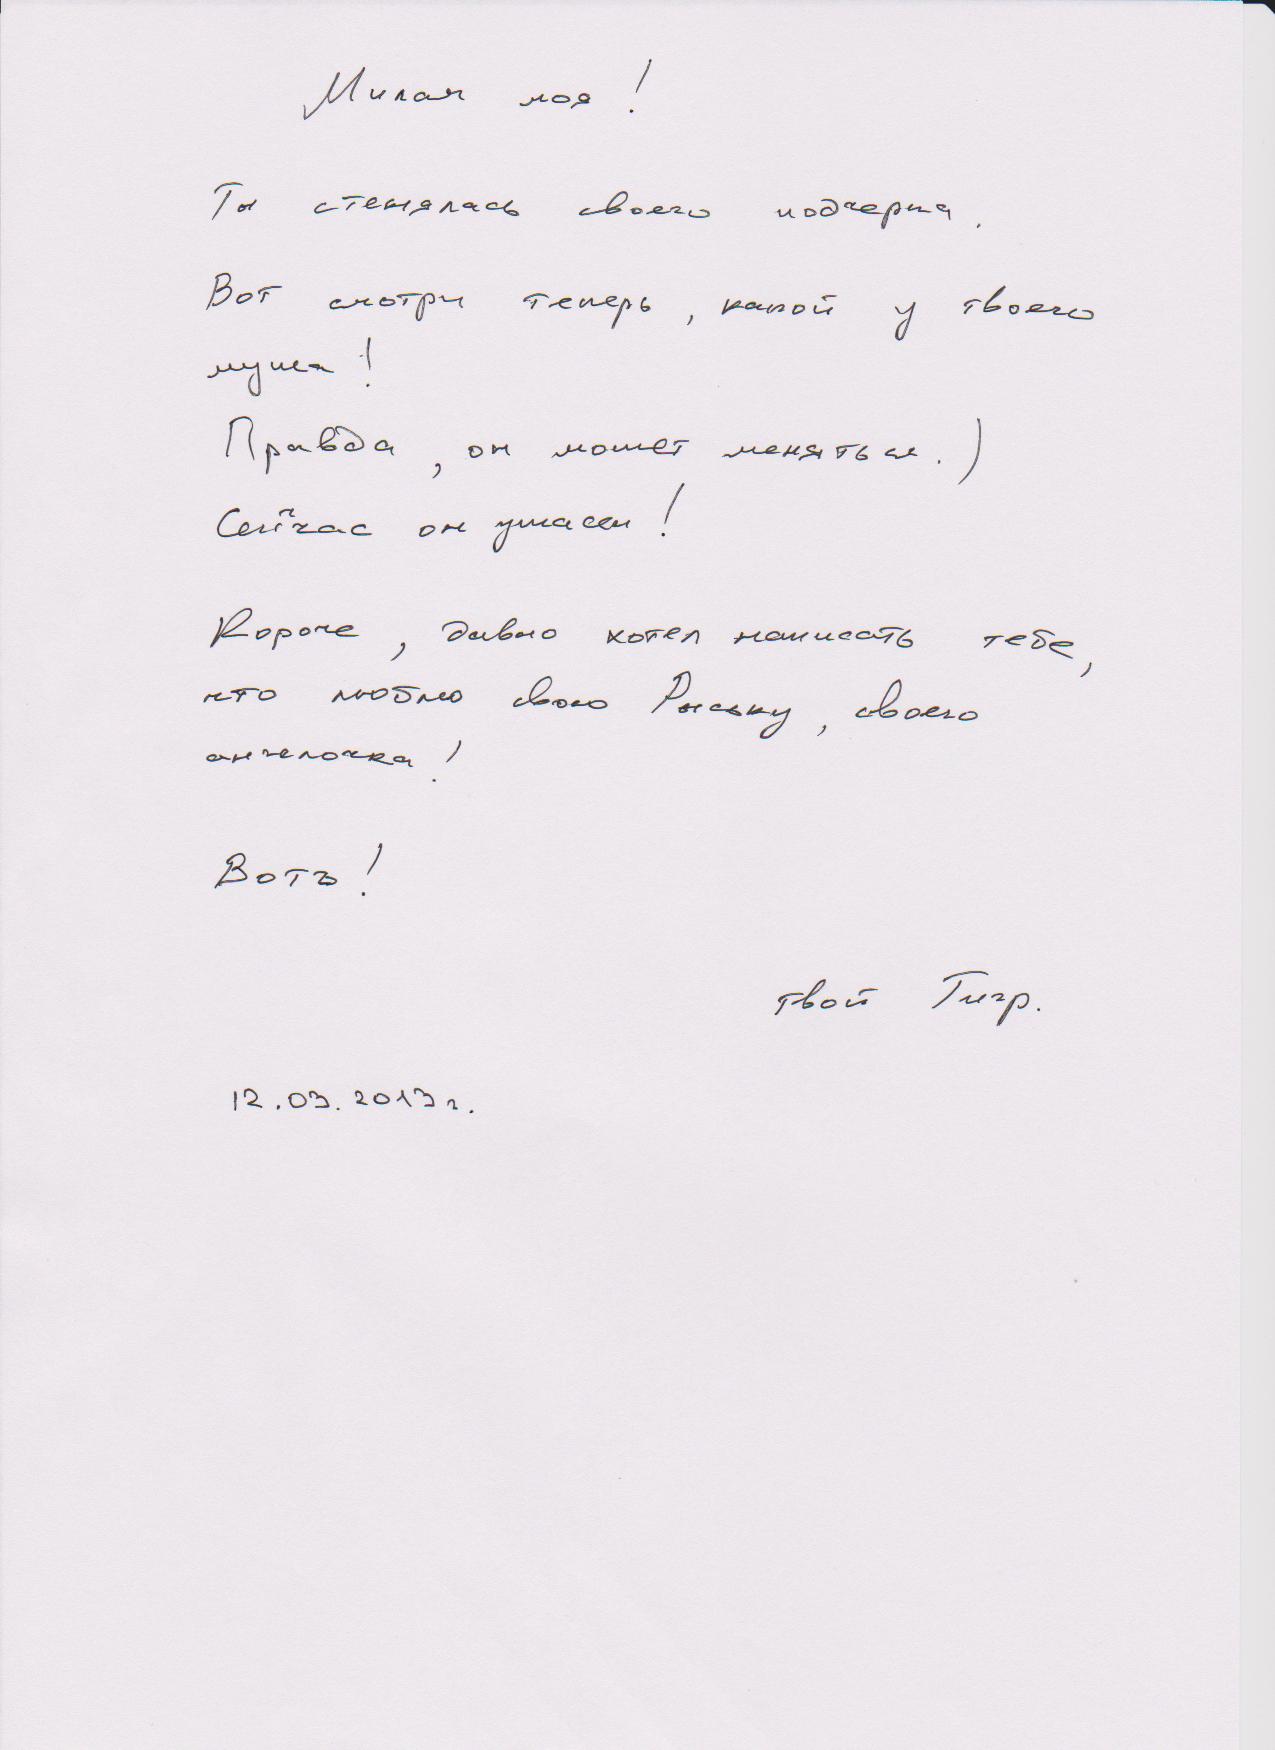 Милая моя!
Ты стеснялась своего подчерка.
Вот смотри теперь, какой у твоего
мужа!
Правда, он может меняться.)
Сейчас он ужасен!
Короче, давно хотел написать тебе,
что люблю свою Рыську, своего
ангелочка!
Вотъ!
твой Тигр.
12.03.2013г.